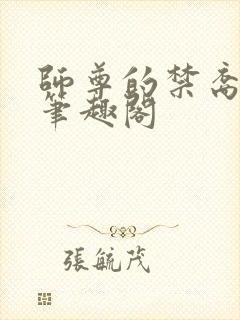 師尊的禁脔
筆趣閣
張毓茂